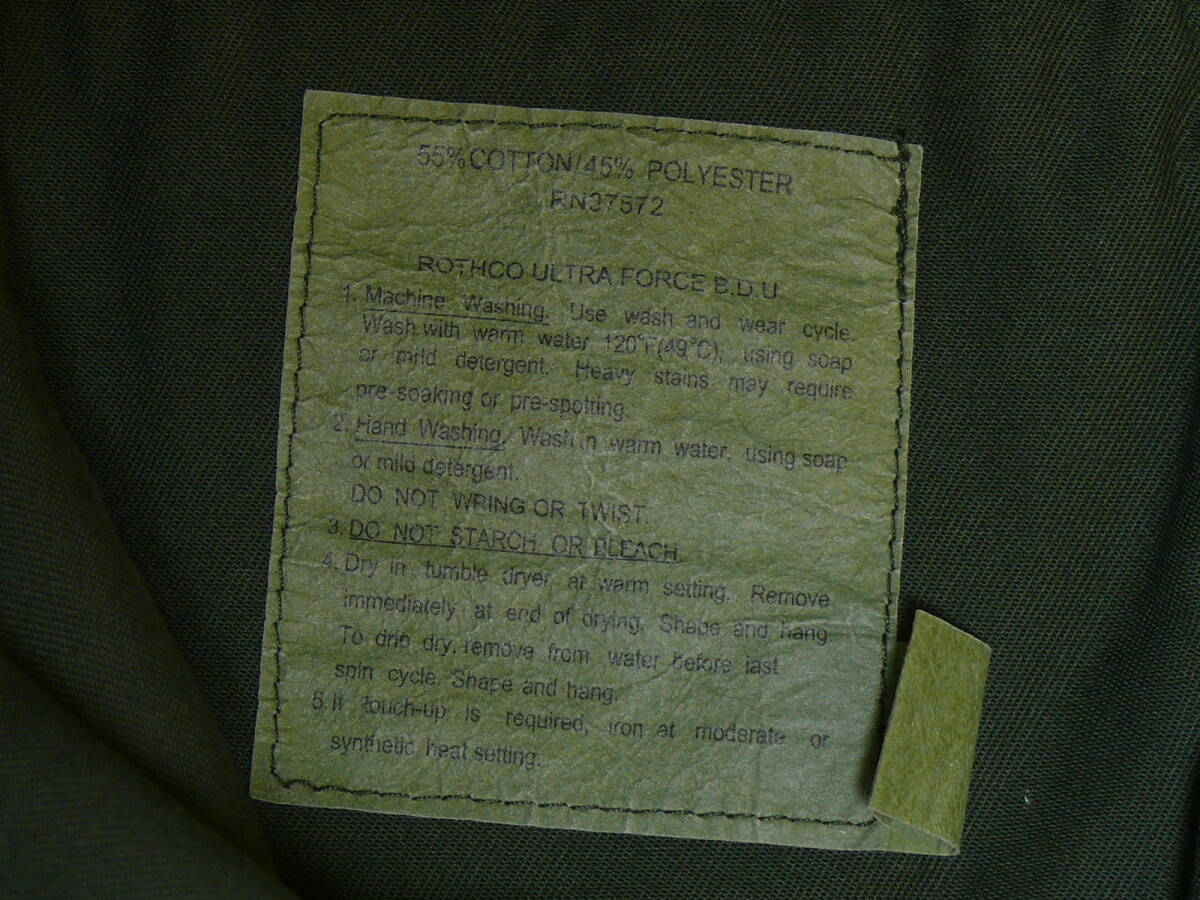 55% COTTON/45% POLYESTER
RN37572
ROTHCO ULTRA FORCE B.D.U.
1. Machine Washing. Use wash and wear cycle.
Wash with warm water 120°F(49°C), using soap
or mild detergent. Heavy stains may require
pre-soaking or pre-spotting.
2. Hand Washing. Wash in warm water, using soap
or mild detergent.
DO NOT WRING OR TWIST.
3. DO NOT STARCH OR BLEACH.
4. Dry in tumble dryer at warm setting. Remove
immediately at end of drying. Shape and hang
To drip dry, remove from water before last
spin cycle. Shape and hang.
5. If touch-up is required, iron at moderate or
synthetic heat setting.